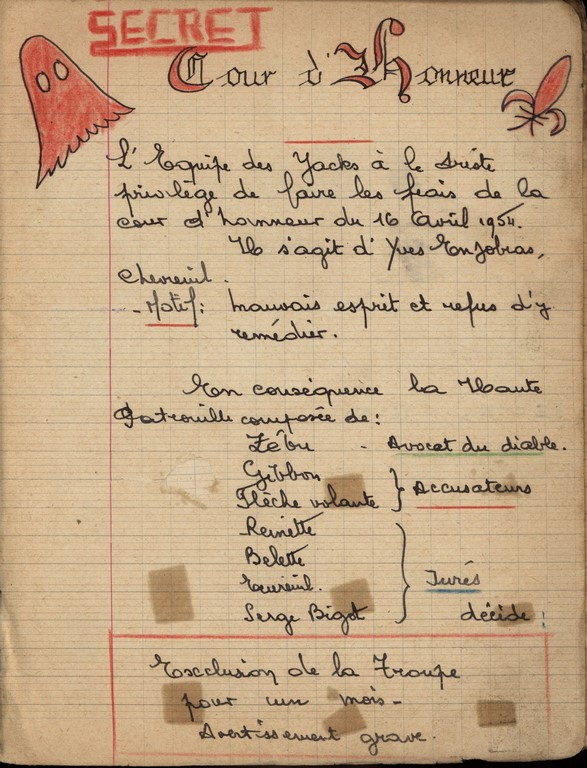 SECRET
Cour d'Honneur
L'Equipe des Yacks à le triste
privilège de faire les frais de la
cour d'honneur du 16 Avril 1954.
Il s'agit d'Yves Enjobras,
Chevreuil.
- Motif: mauvais esprit et refus d'y
remédier.
En conséquence la Haute
Patrouille composée de:
Zébu - Avocat du diable.
Gibbon
Flèche volante } Accusateurs
Reinette
Belette
Ecureuil. } Jurés
Serge Bigot décide:
Exclusion de la Troupe
pour un mois-
Avertissement grave.